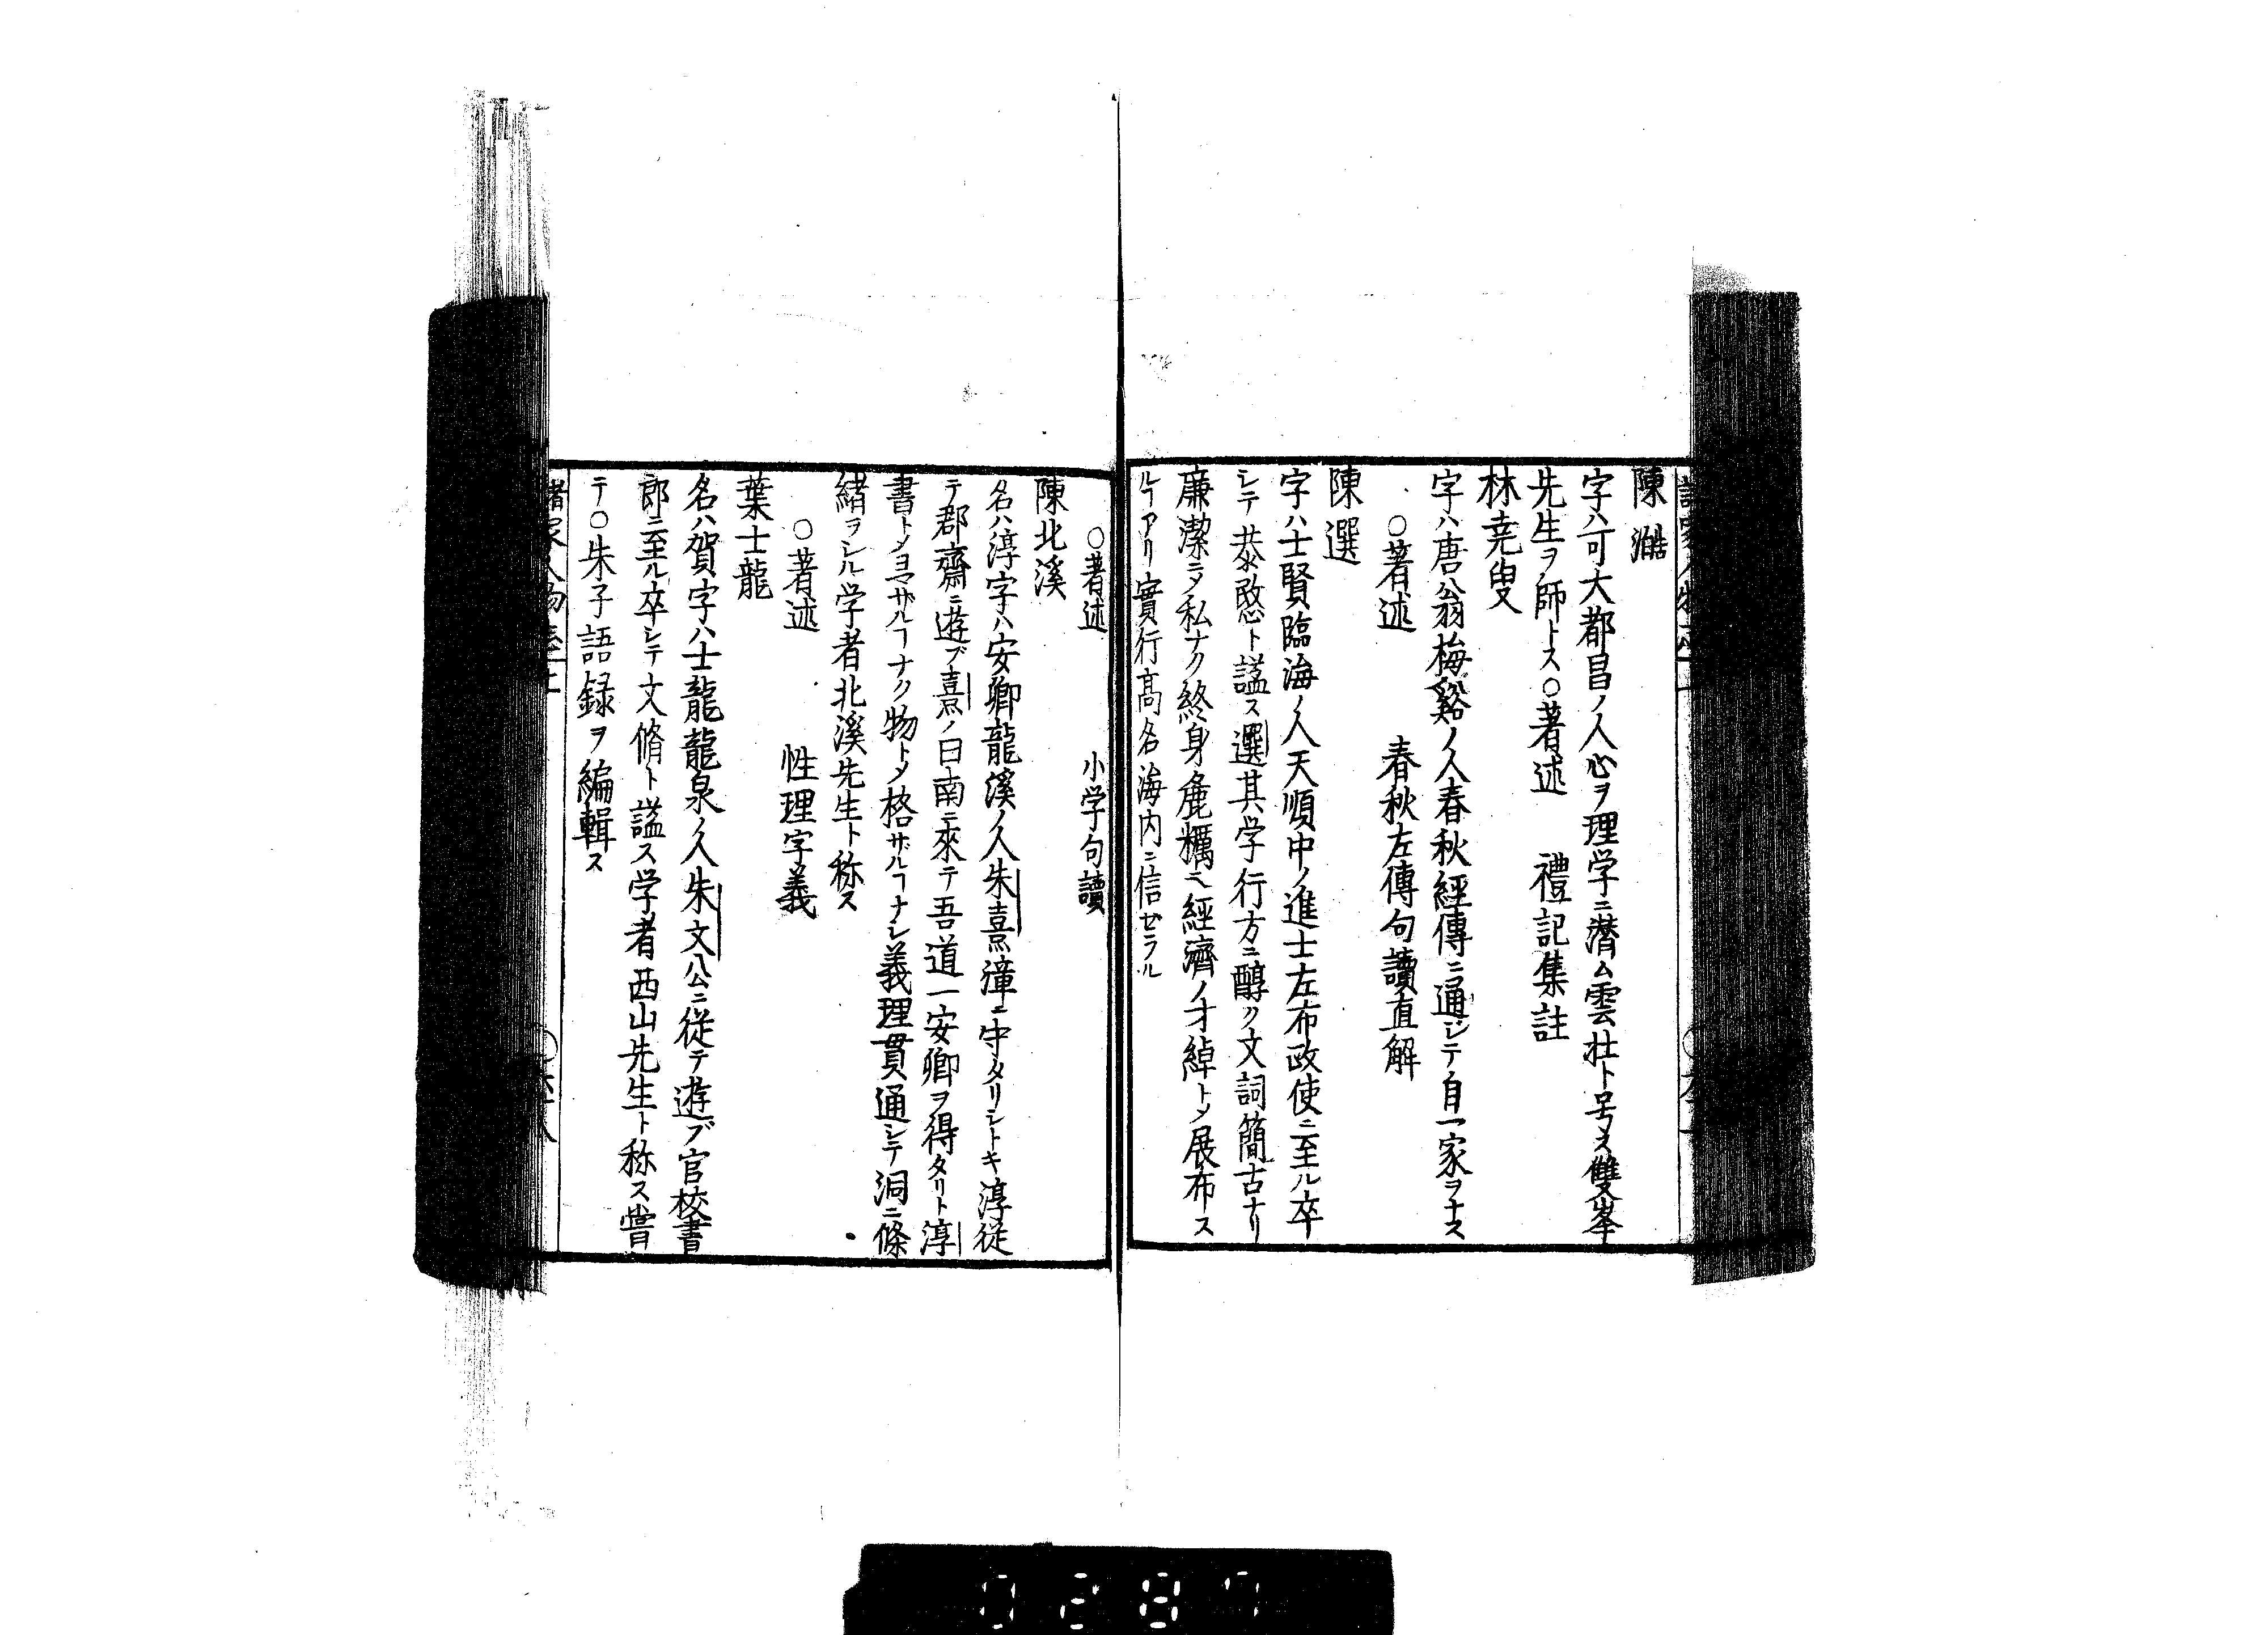 陳澔
字ハ可大都昌ノ人心ヲ理学ニ潜ム雲壮ト号ス雙峯
先生ヲ師トス○著述　禮記集註
林尭叟
字ハ唐翁梅谿ノ人春秋經傳ニ通シテ自一家ヲナス
○著述　春秋左傳句讀直解
陳選
字ハ士賢臨海ノ人天順中ノ進士左布政使ニ至ル卒
シテ恭愍ト謚ス選其学行方ニ醇ク文詞簡古ナリ
廉潔ニ〆私ナク終身麁糲ニ經濟ノ才綽ト〆展布ス
ルヿアリ實行高名海内ニ信ゼラル
○著述　小学句讀
陳北溪
名ハ淳字ハ安卿龍溪ノ人朱熹漳ニ守タリシトキ淳従
テ郡齋ニ遊ブ熹ノ曰南ニ來テ吾道一安卿ヲ得タリト淳
書ト〆ヨマザルヿナク物ト〆格サザルヿナシ義理貫通シテ洞ニ條
緒ヲシル学者北溪先生ト称ス
○著述　性理字義
葉士龍
名ハ賀字ハ士龍龍泉ノ人朱文公ニ従テ遊ブ官校書
郎ニ至ル卒シテ文脩ト謚ス学者西山先生ト称ス嘗
テ○朱子語録ヲ編輯ス
諸家人物志上